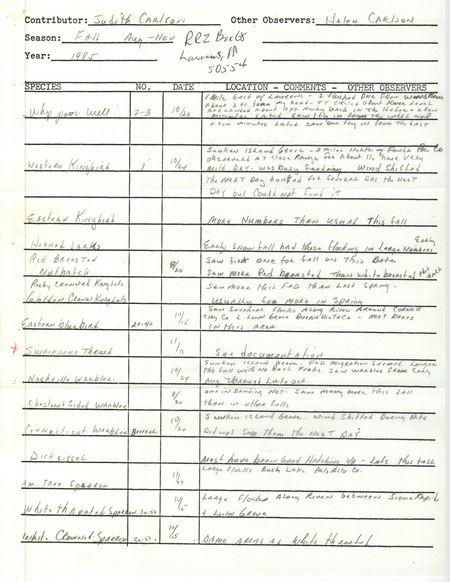 Contributor: Judith Carlson Other Observers: Helen Carlson
Season: Fall Aug-Nov RR2 Box 65
Year: 1985 Laurens, IA
50554
SPECIES NO. DATE LOCATION - COMMENTS - OTHER OBSERVERS
1 Mile East of Laurens - I flushed one from
about 2 ft from my head. It circled about knee level
and landed about
minutes later saw it fly in from the west and
Whip poor will 2-3 10/20 a few minutes later saw one fly in from the east
Sunken Island Grove - 2 miles north
observed at close range for about 1/2 hour. Very
Western Kingbird 1 10/24 mild day - was busy feeding. Wind shifted
the next day hunted for several hrs the next
day but could not find it
Eastern Kingbird More numbers than usual this fall
Horned Larks Early snow fall had those flocking in large numbers Early
Red Breasted 8/20 Saw first one for fall on this date
Nuthatch Saw more Red breasted than white breasted this date
Ruby Crowned Kinglets Saw more this fall than last spring.
Golden Crown Kinglets usually see more in spring
Saw several flocks along river around Cornell
Clay Co & Lizard Grove Buena Vista Co - most
Eastern bluebird 20-40 10/15 in this area
Swainsons Thrush 11/11 See documentation
Sunken Island Grove. Fall migration seemed longer
this fall with no real peaks. Saw warblers from early
Nashville Warbler 10/24 Aug through late Oct
and in banding net. Saw many more this fall
Chestnut Sided Warbler than in other falls
Sunken Island Grove. Wind shifted during nite
Connecticut Warbler 10/24 Did not see them the next day
Dickcissel Must have been good hatching yr - lots this fall
Large flocks Rush Lake Palo Alto Co.
Am. Tree Sparrow 11/17
Large flocks along river between Sioux Rapids
White throated Sparrow 30-50 10/15 & Linn Grove
White Crowned Sparrow 30-50 10/15 Same areas as white throated